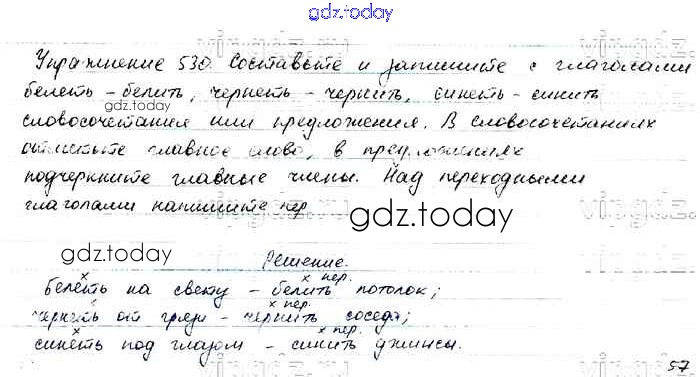 gdz.today
Упражнение 530. Составьте и запишите с глаголами
белеть – белить, чернеть – чернить, синеть – синить
gdz.today
словосочетания или предложения. В словосочетаниях
отметьте главное слово, в предложениях
подчеркните главные члены. Над переходными
глаголами напишите пер.
gdz.today
gdz.today
Решение.
х х пер.
белеть на свету – белить потолок;
х пер.
чернеть от грязи – чернить соседа;
х х пер.
синеть под глазом – синить джинсы.
57